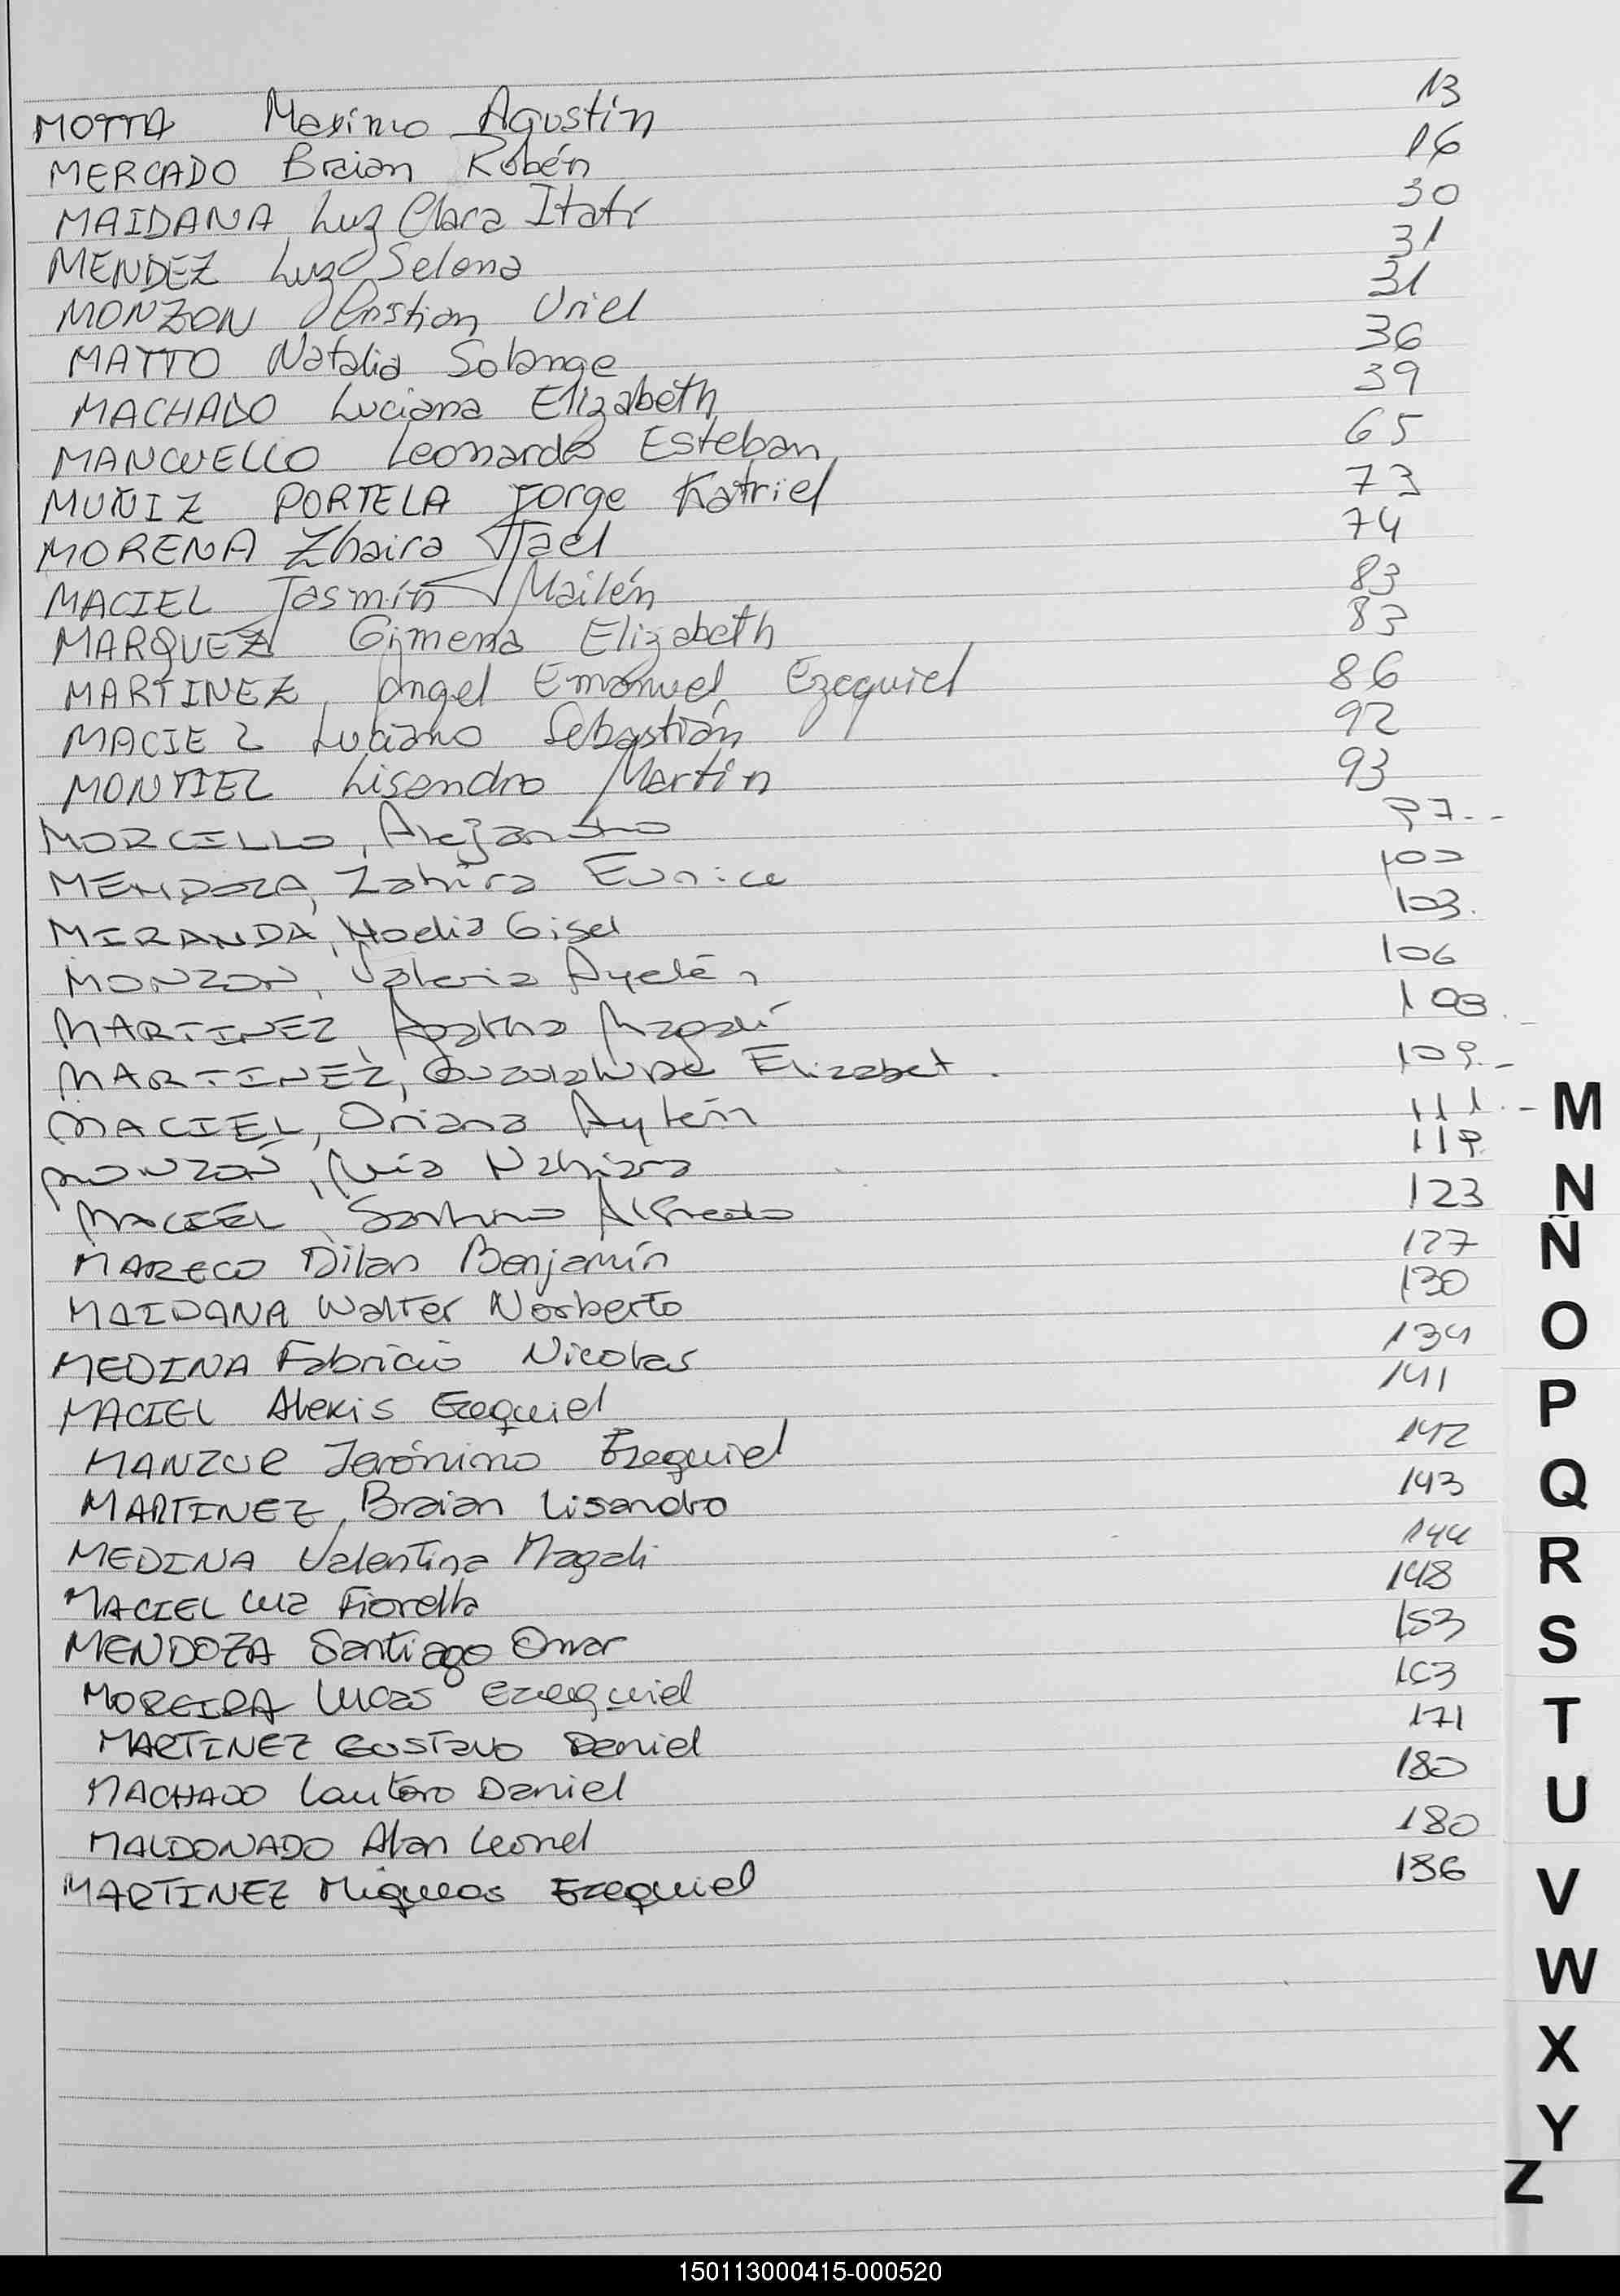 MOTTA Maximo Agustín 13
MERCADO Braian Rubén 16
MAIDANA Luz Clara Itatí 30
MENDEZ Luz Selena 31
MONZON Cristian Uriel 31
MATTO Natalia Solange 36
MACHADO Luciana Elizabeth 39
MANCUELLO Leonardo Esteban 65
MUÑIZ PORTELA Jorge Katriel 73
MORENA Zhaira Jael 74
MACIEL Jasmín Mailén 83
MARQUEZ Gimena Elizabeth 83
MARTINEZ Angel Emanuel Ezequiel 86
MACIEL Luciano Sebastián 92
MONTIEL Lisandro Martín 93
MORCILLO, Alejandro 97.-
MENDOZA, Zahira Eunice 100
MIRANDA, Noelia Gisel 103.
MONZON, Valeria Ayelén 106
MARTINEZ, Agatha Magalí 108.
MARTINEZ, Guadalupe Elizabet. 109.-
MACIEL, Oriana Aylén 111.-
MONZON, Mía Nahiara 119.
MACIEL, Santino Alfredo 123
MARECO Dilan Benjamín 127
MAIDANA Walter Norberto 130
MEDINA Fabricio Nicolas 134
MACIEL Alexis Ezequiel 141
MANZUR Jerónimo Ezequiel 142
MARTINEZ, Braian Lisandro 143
MEDINA Valentina Magali 144
MACIEL Luz Fiorella 148
MENDOZA Santiago Omar 153
MOREIRA Lucas Ezequiel
MARTINEZ Gustavo Daniel 171
MACHADO Lautaro Daniel 180
MALDONADO Alan Leonel 180
MARTINEZ Miqueas Ezequiel 186
M
N
Ñ
O
P
Q
R
S
T
U
V
W
X
Y
Z
150113000415-000520